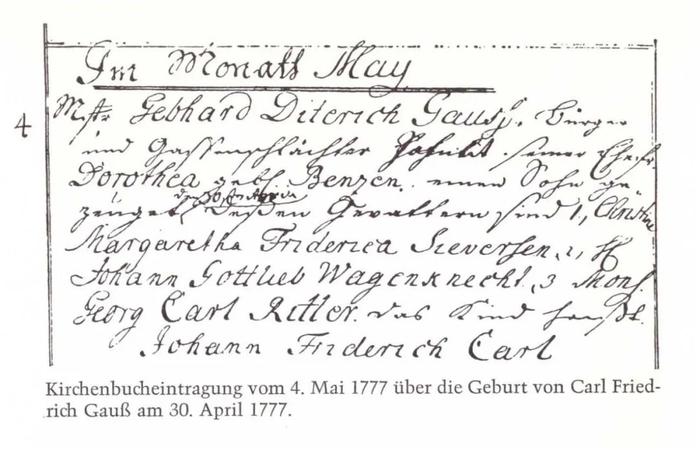 Im Monath May
4
Mstr Gebhard Diterich Gauss, bürger
und Gassenschlächter hat mit seiner Ehefr
Dorothea geb. Benzen einen Sohn ge-
den 30st Apr
zeuget, deßen Gevattern sind 1, Christine
Margaretha Friderica Sieversen, 2, H
Johann Gottlieb Wagenknecht, 3 Mons.
Georg Carl Ritter. das Kind heißt
Johann Friderich Carl
Kirchenbucheintragung vom 4. Mai 1777 über die Geburt von Carl Fried-
rich Gauß am 30. April 1777.